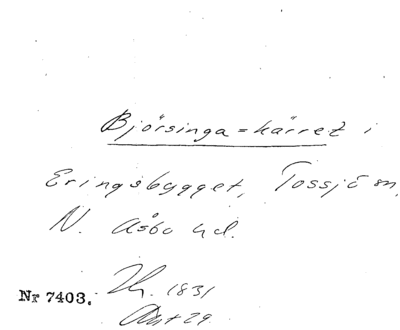 Björsinga=kärret i
Eringsbygget, Tossjö sn,
N. Åsbo hd.
1831
Nr 7403.
29